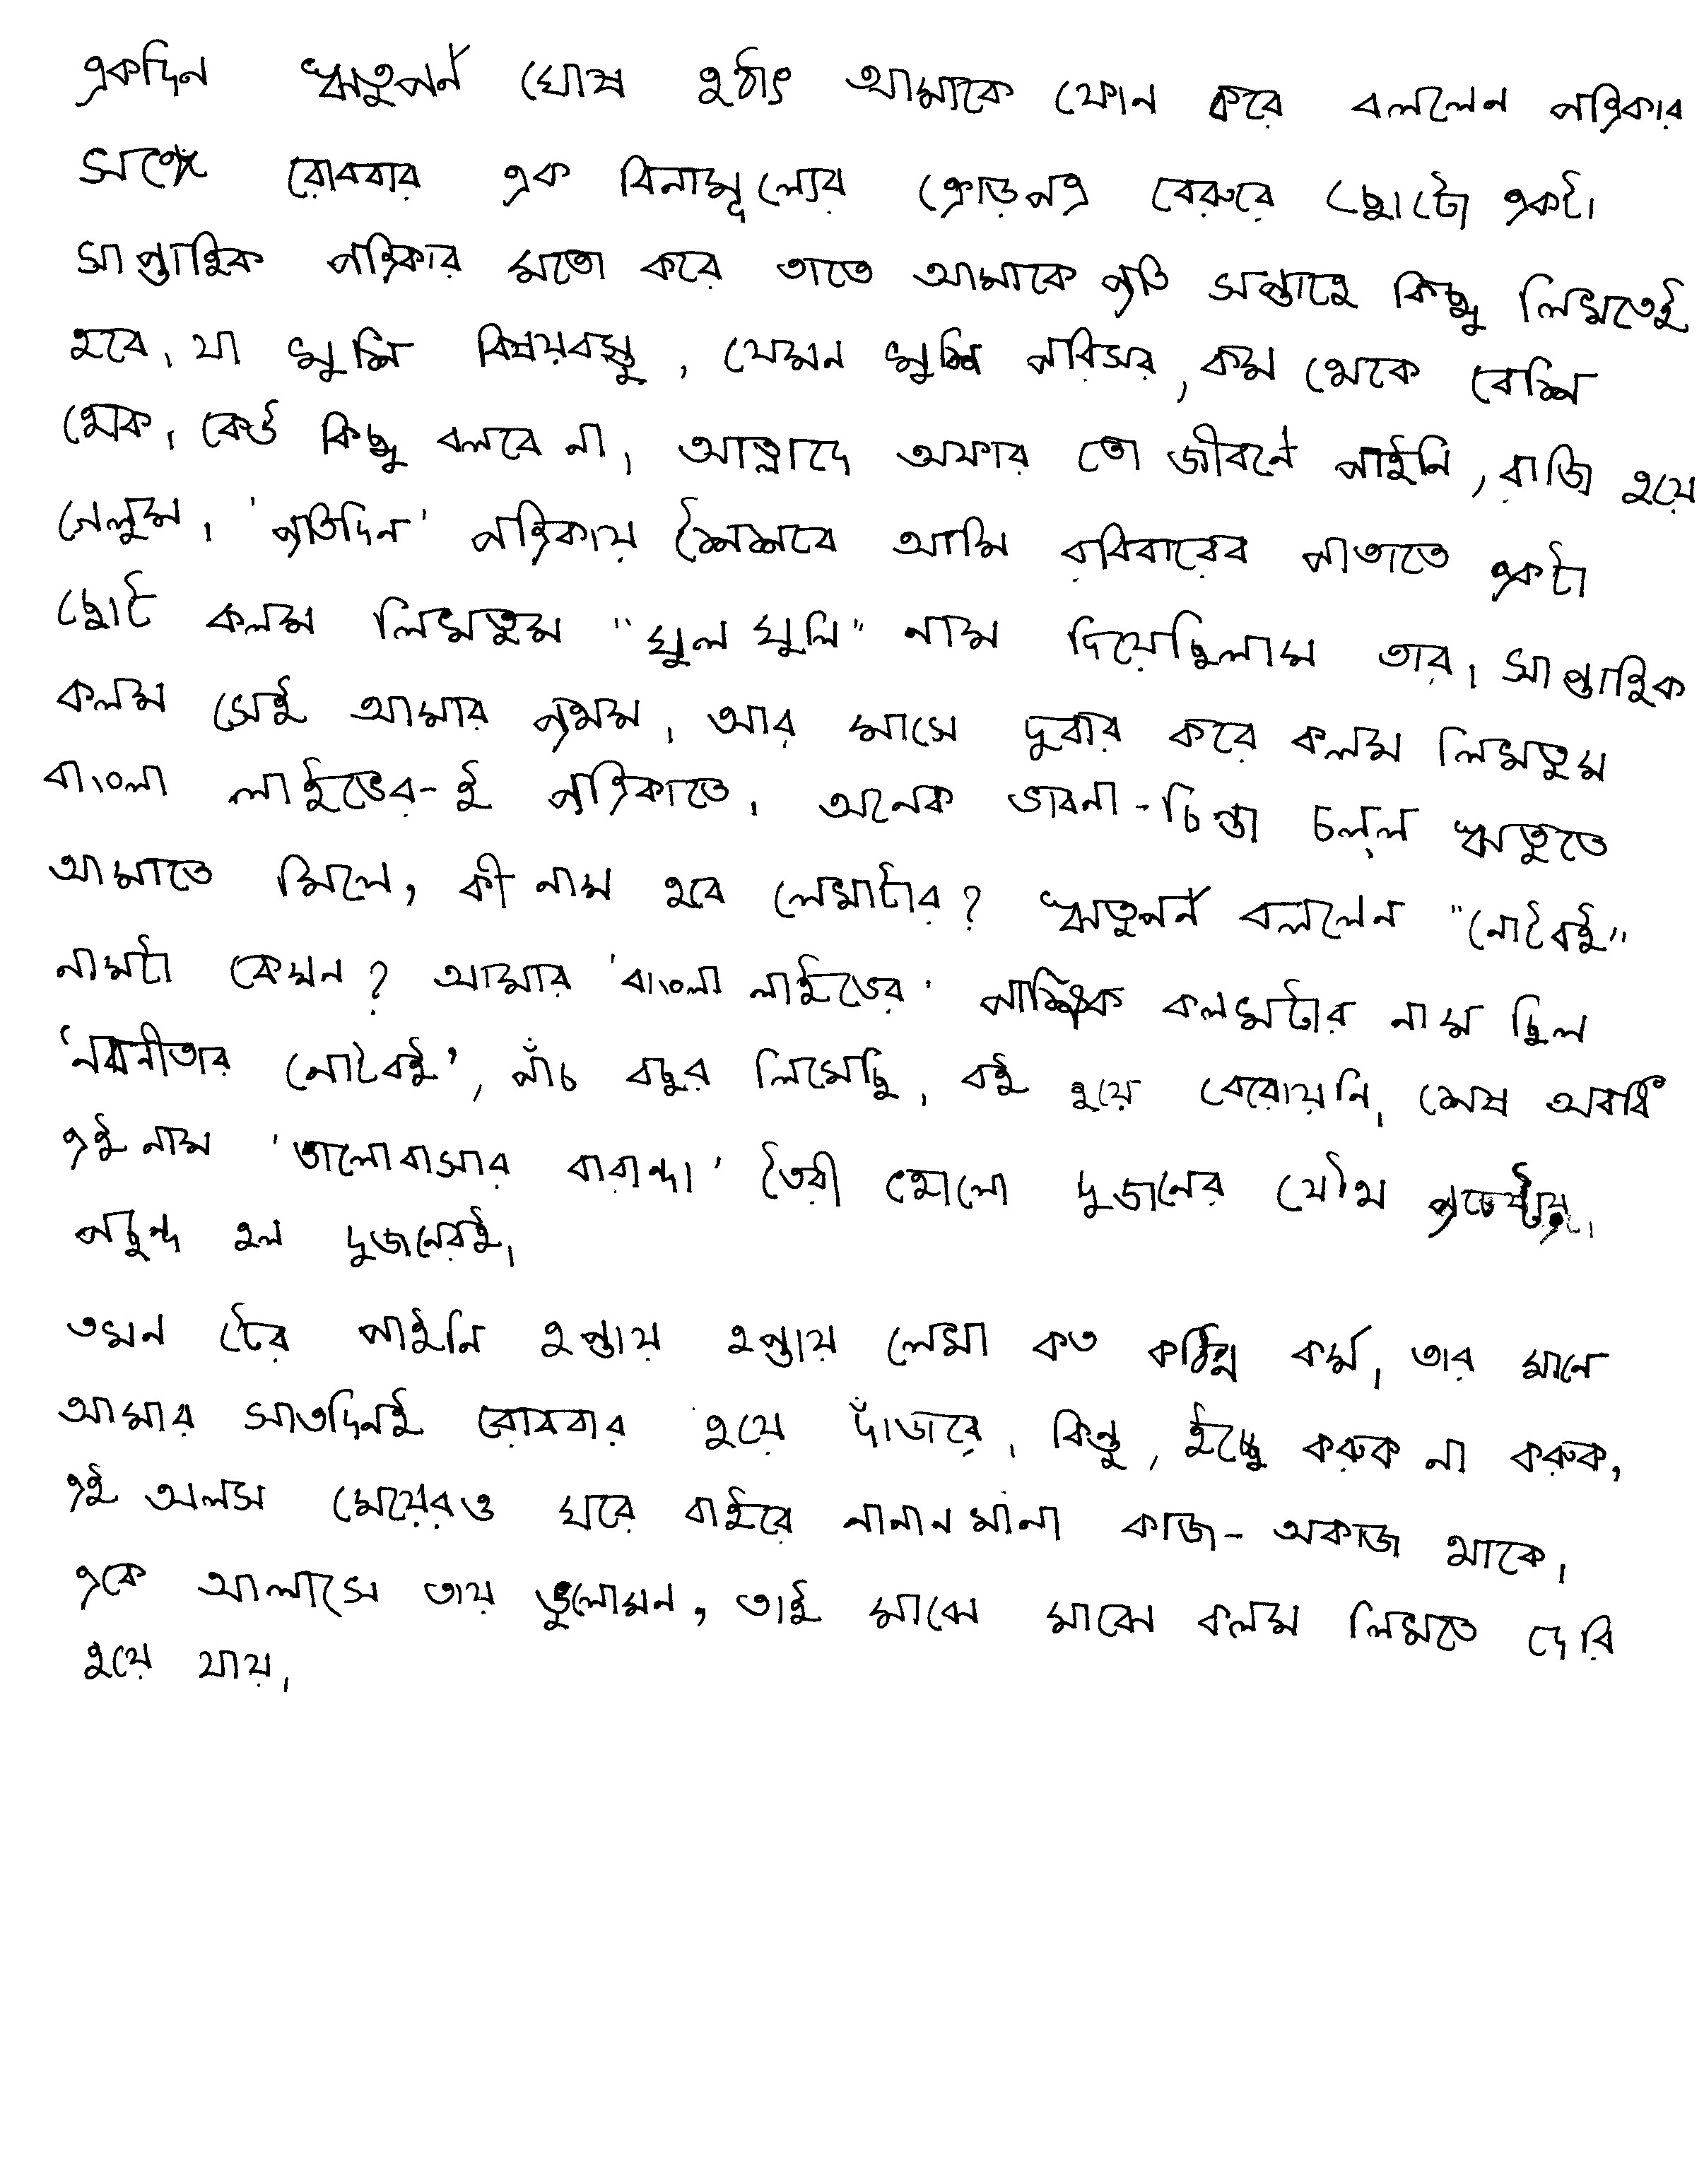 একদিন ঋতুপর্ণ ঘোষ হঠাৎ আমাকে ফোন করে বললেন পত্রিকার
সঙ্গে রোববার এক বিনামূল্যের ক্রোড়পত্র বেরুবে ছোটো একটা
সাপ্তাহিক পত্রিকার মতো করে তাতে আমাকে প্রতি সপ্তাহে কিছু লিখতেই
হবে। যা খুশি বিষয়বস্তু, যেমন খুশি পরিসর, কম থেকে বেশি
হোক। কেউ কিছু বলবে না। আহ্লাদে অফার তো জীবনে পাইনি, রাজি হয়ে
গেলুম। 'প্রতিদিন' পত্রিকায় শৈশবে আমি রবিবারের পাতাতে একটা
ছোট কলম লিখতুম "ঘুলঘুলি" নাম দিয়েছিলাম তার। সাপ্তাহিক
কলম সেই আমার প্রথম। আর মাসে দুবার করে কলম লিখতুম
বাংলা লাইভের-ই পত্রিকাতে। অনেক ভাবনা-চিন্তা চলল ঋতুতে
আমাতে মিলে, কী নাম হবে লেখাটার? ঋতুপর্ণ বললেন "নোটবই"
নামটা কেমন? আমার 'বাংলা লাইভের' পাক্ষিক কলমটার নাম ছিল
'নবনীতার নোটবই', পাঁচ বছর লিখেছি। বই হয়ে বেরোয়নি। শেষ অবধি
এই নাম 'ভালোবাসার বারান্দা' তৈরী হোলো দুজনের যৌথ প্রচেষ্টায়।
পছন্দ হল দুজনেরই।
তখন টের পাইনি হপ্তায় হপ্তায় লেখা কত কঠিন কর্ম। তার মানে
আমার সাতদিনই রোববার হয়ে দাঁড়াবে। কিন্তু, ইচ্ছে করুক না করুক,
এই অলস মেয়েরও ঘরে বাইরে নানানখানা কাজ-অকাজ থাকে।
একে আলসে তায় ভুলোমন, তাই মাঝে মাঝে কলম লিখতে দেরি
হয়ে যায়।